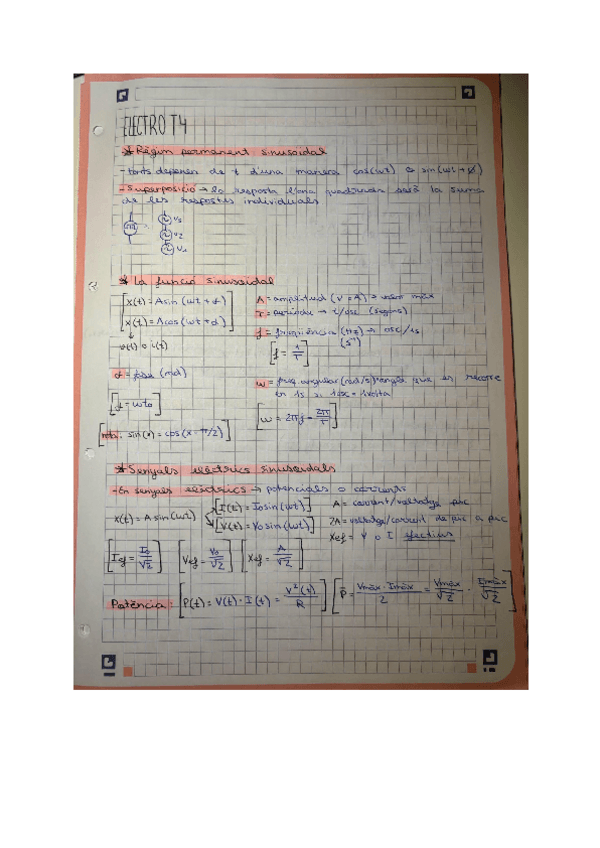 ELECTRO T4
* Règim permanent sinusoidal
- tants depenen de t d'una manera cos(wt) o sin(wt+ø)
- Superposició → la resposta quadrada serà la suma
de les respostes individuals
V3
V2
V1
* La funció sinusoidal
[x(t) = A sin(wt+α)
x(t) = A cos(wt+α)]
v(t) o i(t)
A = amplitud (V = A) → valor màx
T = període → t/osc (segons)
f = freqüència (Hz) → osc/1s
(s⁻¹)
[f = 1/T]
α = fase (rad)
[α = wt₀]
[nota: sin(x) = cos(x - π/2)]
w = freq. angular (rad/s) angle que es recorre
en 1s 1osc = 1volta
[w = 2πf = 2π/T]
* Senyals elèctrics sinusoidals
- En senyals elèctrics → potencials o corrents
x(t) = A sin(wt)
[I(t) = I₀ sin(wt)]
[V(t) = V₀ sin(wt)]
A = corrent/voltatge pic
2A = voltatge/corrent de pic a pic
Xef = V o I efectius
[Ief = I₀/√2] [Vef = V₀/√2] [Xef = A/√2]
Potència: [P(t) = V(t) · I(t) = V²(t)/R] [P̄ = Vmàx · Imàx/2 = Vmàx/√2 · Imàx/√2]